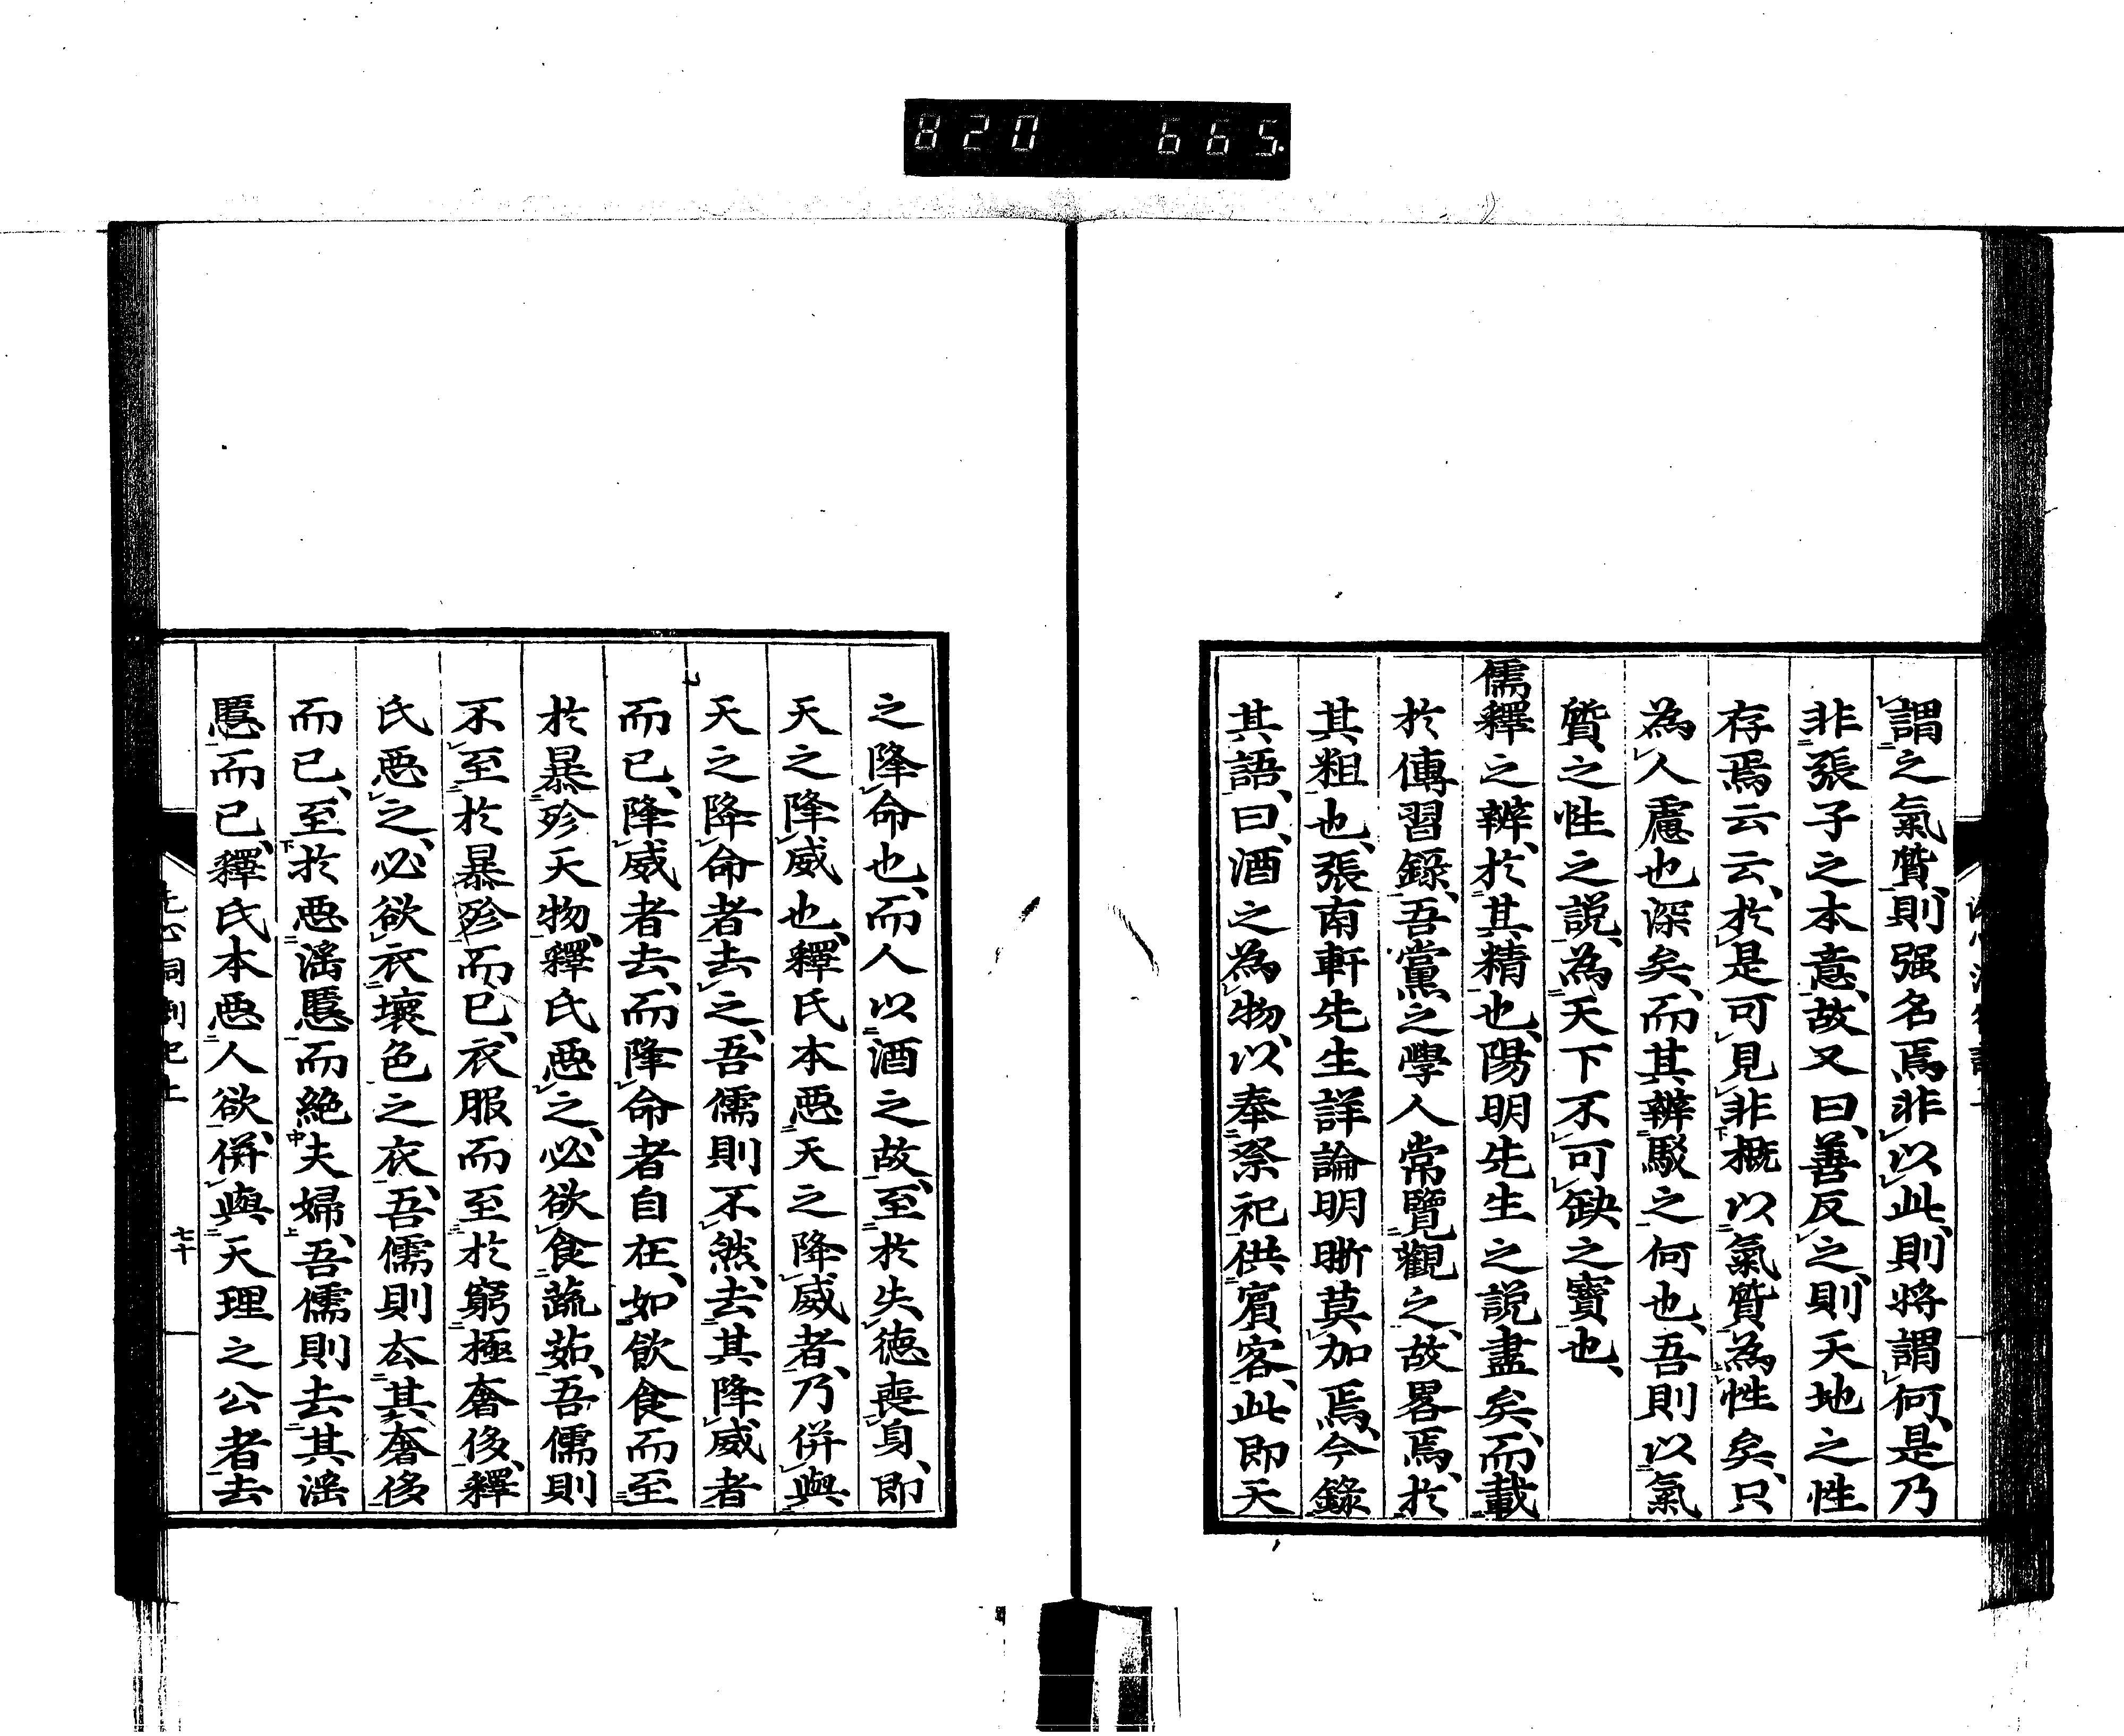 820 665.
謂之氣質、則强名焉、非以此、則將謂何、是乃
非張子之本意、故又曰、善反之、則天地之性
存焉云云、於是可見非概以氣質為性矣、只
為人慮也深矣、而其辨駁之何也、吾則以氣
質之性之説、為天下不可缺之寶也、
儒釋之辨、於其精也、陽明先生之說盡矣、而載
於傳習錄、吾黨之學人常覽觀之、故畧焉、於
其粗也、張南軒先生詳論明晣莫加焉、今錄
其語、曰、酒之為物、以奉祭祀供賓客、此即天
之降命也、而人以酒之故、至於失德喪身、即
天之降威也、釋氏本惡天之降威者、乃併與
天之降命者去之、吾儒則不然、去其降威者
而已、降威者去、而降命者自在、如飲食而至
於暴殄天物、釋氏惡之、必欲食蔬茹、吾儒則
不至於暴殄而已、衣服而至於窮極奢侈、釋
氏惡之、必欲衣壞色之衣、吾儒則去其奢侈
而已、至於惡滛慝而絶夫婦、吾儒則去其滛
慝而已、釋氏本惡人欲、併與天理之公者去
洞劄記上 七十